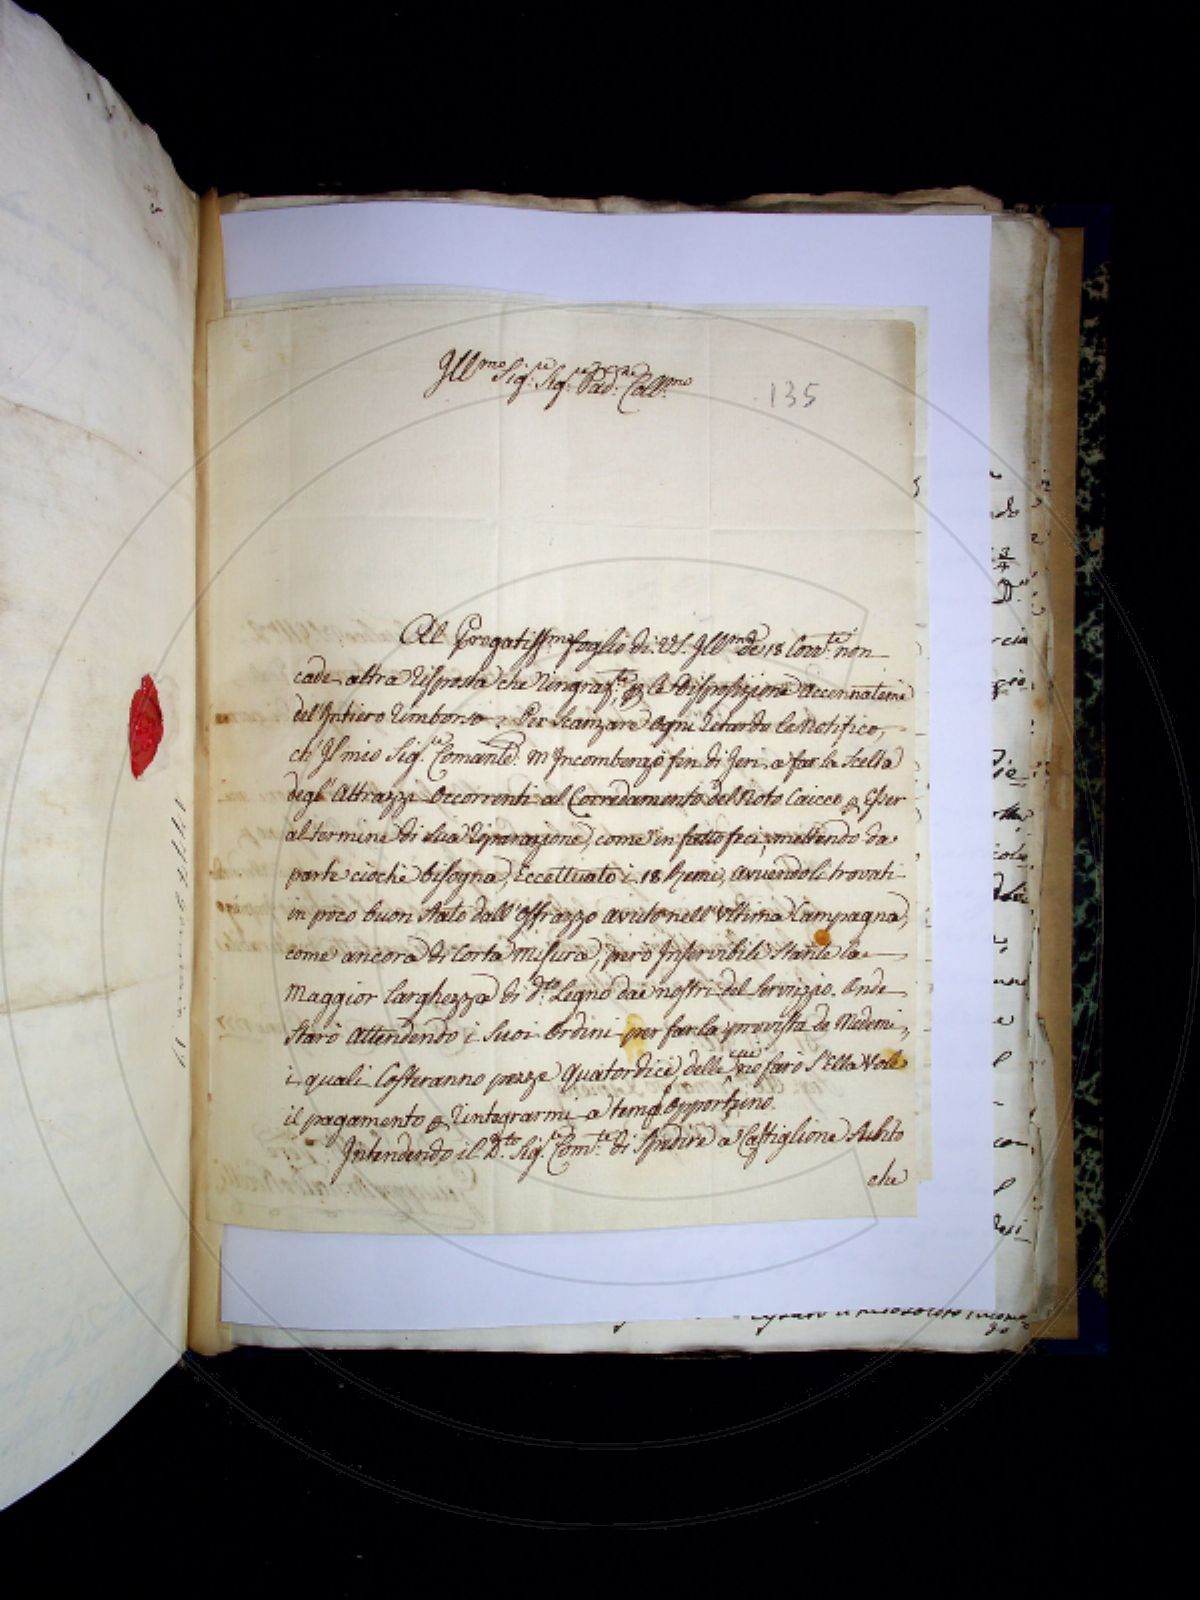 Ill.mo Sig.re Sig.re Pad.ne Coll.mo
135
Al Pregatiss.mo foglio di VS. Ill.ma de 18 Corr.te non
cade altra risposta che ringraz.la p la disposizione accennatami
del Intiero rimborso. Per scanzare ogni ritardo le Notifico,
ch' Il mio Sig.re Comand.te m'Incombenzò fin di Jeri a far la scelta
degl' Attrazzi Occorrenti al Corredamento del Noto Caicco p Esser
al termine di sua riparazione, come in fatto feci, mettendo da
parte ciochè bisogna, Eccettuato i 18 Remi, avuendoli trovati
in poco buon stato dall' Offrazzo avuto nell' Ultima Campagna,
come ancora di Corta misura, però Inservibili stante la
Maggior larghezza di d.to Legno dai nostri del servizio. Onde
starò attendendo i suoi Ordini per far la provista de Medemi,
i quali Costeranno pezze Quatordice, delle q.li ne farò S'Ella Vole
il pagamento p rintegrarmi a tempo Opportuno.
Intendendo il D.to Sig.re Com.te di spedire a Castiglione subito
che